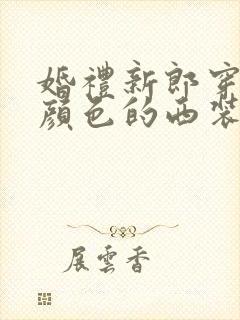 婚禮新郎穿
顏色的西裝
展雲香